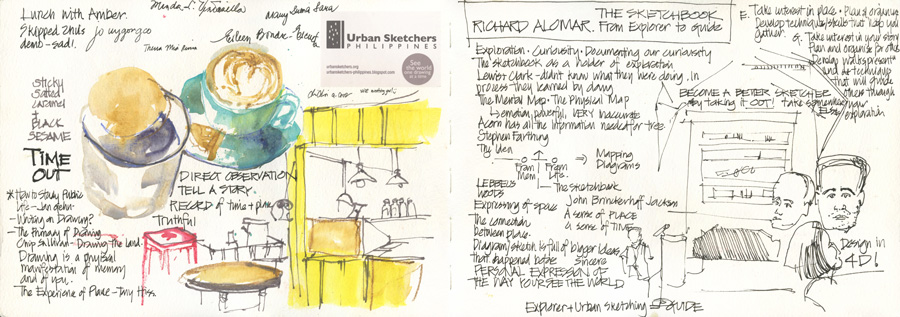 Lunch with Amber.
Skipped Zhu's
demo - sad!
Eileen
Urban Sketchers
PHILIPPINES
urbansketchers.org
urbansketchers-philippines.blogspot.com
See
the world
one drawing
at a time
STICKY
SALTED
CARAMEL
+
BLACK
SESAME
TIME
OUT
* How to Study Public
Life - Jan Gehl -
- Writing on Drawing?
- The Primacy of Drawing
- Chip Sullivan - Drawing the Land.
Drawing is a physical
manifestation of memory
and of you.
The Experience of Place - Tony Hiss
DIRECT OBSERVATION
TELL A STORY.
RECORD of time + place
Truthful
THE SKETCHBOOK
RICHARD ALOMAR. From Explorer to Guide
Exploration · Curiosity · Documenting our curiosity
The sketchbook as a holder of exploration
Lewis + Clark - didn't know what they were doing. In
process they learned by doing
The Mental Map - The Physical Map
emotional, powerful, VERY inaccurate
Acorn has all the information needed for tree.
Stephen Farthing
From
Them
From
Life.
Mapping
Diagrams
The Sketchbook
LEBBEUS
WOODS
Expressing of space
John Brinckerhoff Jackson
A sense of PLACE
a sense of TIME
The connection
between place.
Diagram/sketch is full of bigger ideas
that happened before
sincere
PERSONAL EXPRESSION OF
THE WAY YOU SEE THE WORLD
Explorer + Urban Sketching → GUIDE
E. Take interest in place · Plan + organize
Develop techniques/skills that help you
gather.
G. Take interest in your story
Plan and organize for others
Develop
and
technique
that will guide
others through
your
exploration
BECOME A BETTER SKETCHER
by taking it OUT! take somewhere
else
Design in
4D!